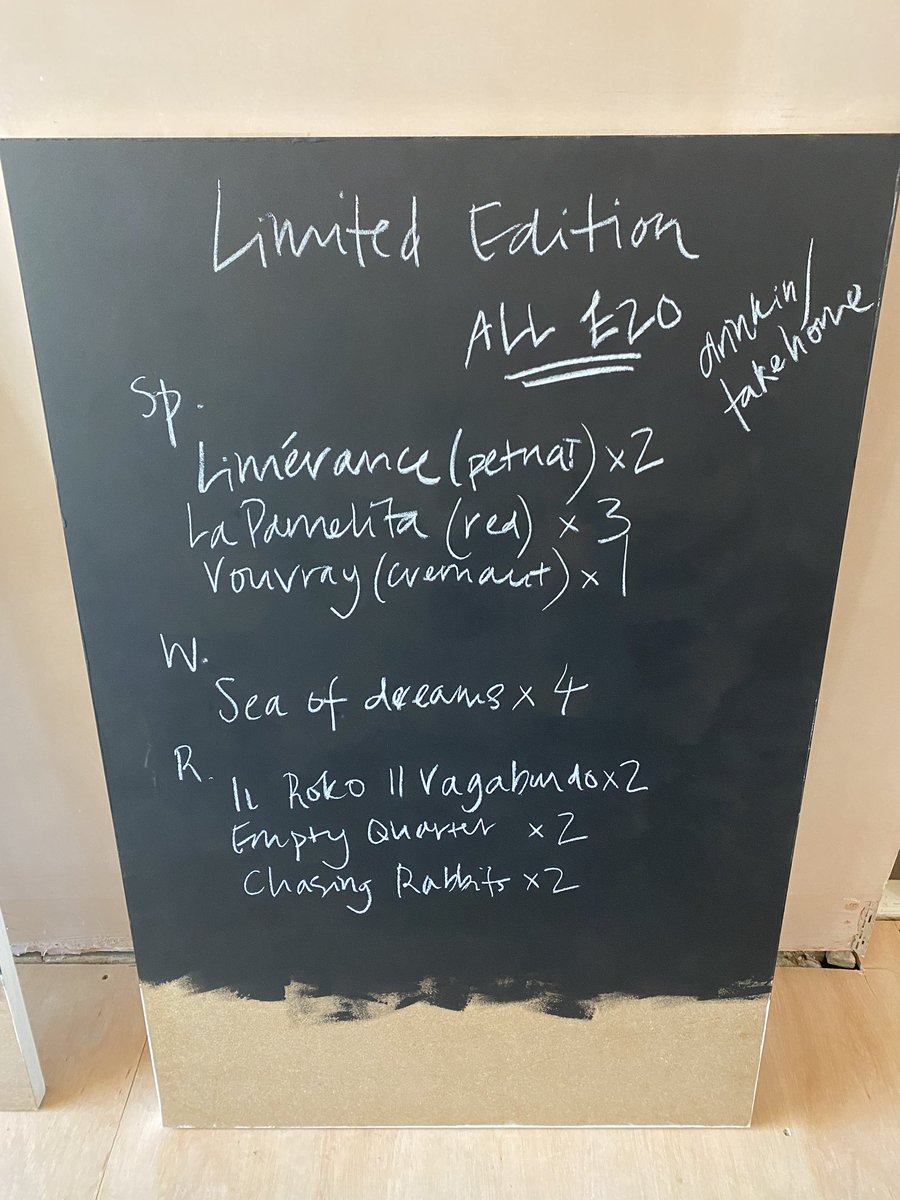 Limited Edition
ALL £20
drink in/
take home
Sp.
Limérance (petnat) x2
La Pamelita (red) x 3
Vouvray (cremaut) x 1
W.
Sea of dreams x 4
R.
IL Roko Il Vagabundo x2
Empty Quarter x2
Chasing Rabbits x2